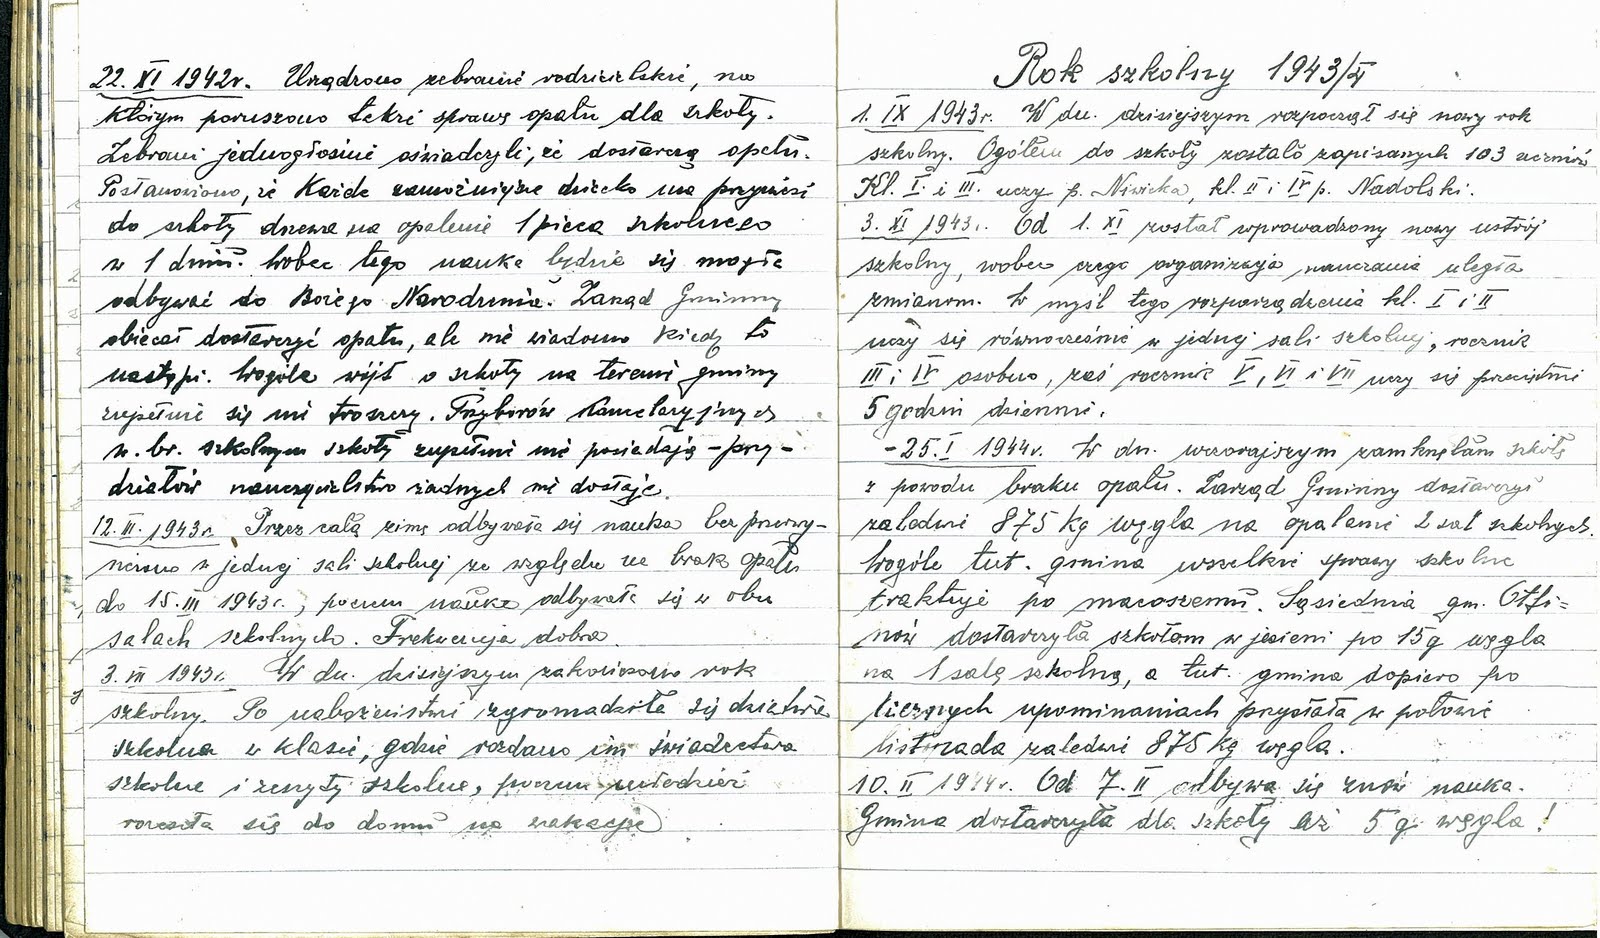 22. XI 1942r. Urządzono zebranie rodzicielskie, na
którym poruszono także sprawę opału dla szkoły.
Zebrani jednogłośnie oświadczyli, że dostarczą opału.
Postanowiono, że każde zamożniejsze dziecko ma przynieść
do szkoły drzewa na opalenie 1 pieca szkolnego
w 1 dniu. Wobec tego nauka będzie się mogła
odbywać do Bożego Narodzenia. Zarząd Gminny
obiecał dostarczyć opału, ale nie wiadomo kiedy to
nastąpi. Wogóle wójt o szkoły na terenie gminy
zupełnie się nie troszczy. Przyborów kancelaryjnych
w br. szkolnym szkoły zupełnie nie posiadają - przy-
działów nauczycielstwo żadnych nie dostaje.
12. III. 1943r. Przez całą zimę odbywała się nauka bez przerwy-
w jednej sali szkolnej ze względu na brak opału
do 15. III 1943r., poczem nauka odbywała się w obu
salach szkolnych. Frekwencja dobra.
3. VII 1943r. W dn. dzisiejszym zakończono rok
szkolny. Po nabożeństwie zgromadziła się dziatwa
szkolna w klasie, gdzie rozdano im świadectwa
szkolne i zeszyty szkolne, poczem młodzież
rozeszła się do domu na wakacje
Rok szkolny 1943/4
1. IX 1943r. W dn. dzisiejszym rozpoczął się nowy rok
szkolny. Ogółem do szkoły zostało zapisanych 103 uczniów
Kl. I. i III. uczy p. Niwicka, kl. II i IV p. Nadolski.
3. XI 1943r. Od 1. XI został wprowadzony nowy ustrój
szkolny, wobec czego organizacja nauczania uległa
zmianom. W myśl tego rozporządzenia kl. I i II
uczy się równocześnie w jednej sali szkolnej, rocznik
III i IV osobno, zaś rocznik V, VI i VII uczy się przeciętnie
5 godzin dziennie.
- 25. I 1944r. W dn. wczorajszym zamknęłam szkołę
z powodu braku opału. Zarząd Gminny dostarczył
zaledwie 875 kg węgla na opalenie 2 sal szkolnych.
Wogóle tut. gmina wszelkie sprawy szkolne
traktuje po macoszemu. Sąsiednia gm. Otfi=
nów dostarczyła szkołom w jesieni po 15 q węgla
na 1 salę szkolną, a tut. gmina dopiero po
licznych upominaniach przysłała w połowie
listopada zaledwie 875 kg węgla.
10. II 1944r. Od 7. II odbywa się znów nauka.
Gmina dostarczyła dla szkoły aż 5 q węgla!